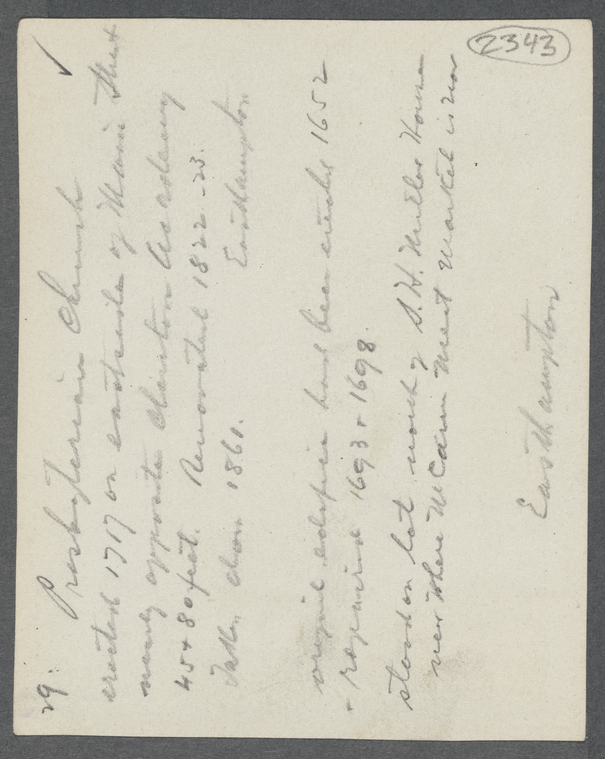 2343
29. Presbyterian Church
erected 1717 on east side of Main Street
nearly opposite Clinton Academy
45 x 80 feet. Renovated 1822-23.
Taken down 1861. Easthampton
original edifice had been erected 1652
+ repaired 1693 + 1698.
stood on lot north of S. H. Miller House
near where McCann Meat Market is now
Easthampton